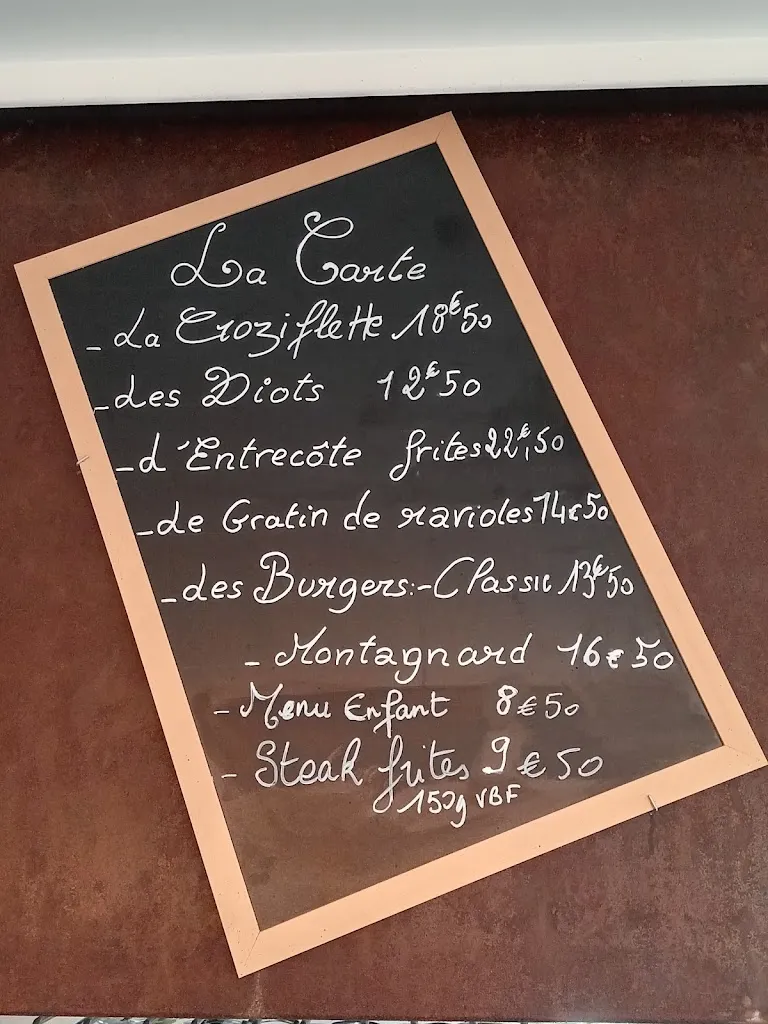 La Carte
- La Croziflette 18€50
- Les Diots 12€50
- L'Entrecôte frites 22€,50
- Le Gratin de ravioles 14€50
- Les Burgers:- Classic 13€50
- Montagnard 16€50
- Menu Enfant 8€50
- Steak frites 9€50
150g VBF